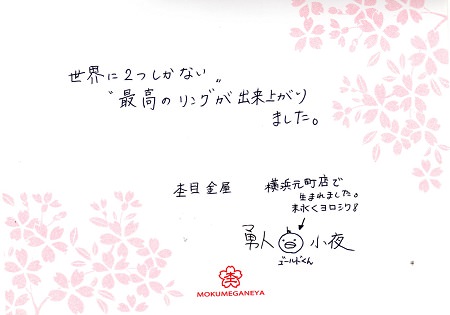 世界に2つしかない
"最高のリングが出来上がり
ました。
杢目金屋
横浜元町店で
生まれました。
末永くヨロシク!
勇人 小夜
ゴールドくん
MOKUMEGANEYA